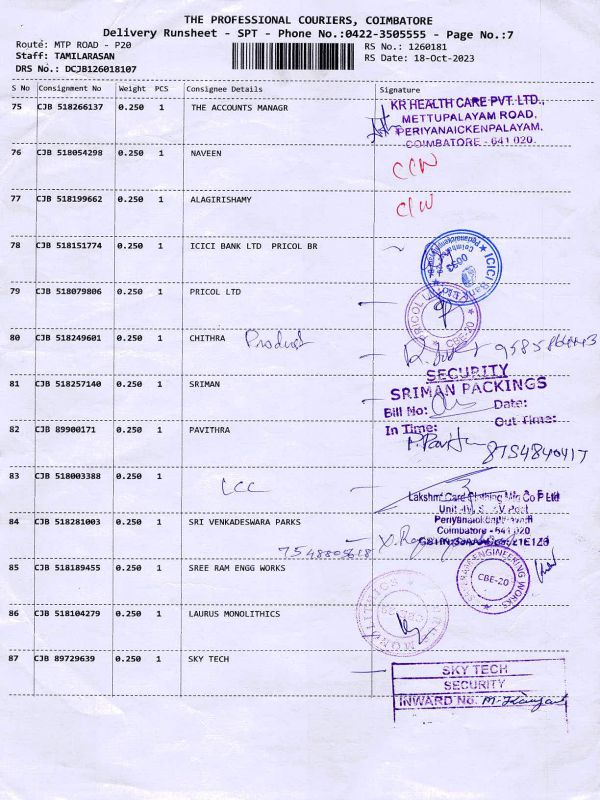 THE PROFESSIONAL COURIERS, COIMBATORE
Delivery Runsheet - SPT - Phone No.:0422-3505555 - Page No.:7
Route: MTP ROAD - P20
RS No.: 1260181
Staff: TAMILARASAN
RS Date: 18-Oct-2023
DRS No.: DCJB126018107
S No Consignment No Weight PCS Consignee Details Signature
75 CJB 518266137 0.250 1 THE ACCOUNTS MANAGR
KR HEALTH CARE PVT. LTD.,
METTUPALAYAM ROAD,
PERIYANAICKENPALAYAM,
COIMBATORE - 641 020.
76 CJB 518054298 0.250 1 NAVEEN
77 CJB 518199662 0.250 1 ALAGIRISHAMY
78 CJB 518151774 0.250 1 ICICI BANK LTD PRICOL BR
ICICI Bank
79 CJB 518079806 0.250 1 PRICOL LTD
PRICOL
CBE-20
80 CJB 518249601 0.250 1 CHITHRA Product
81 CJB 518257140 0.250 1 SRIMAN
SECURITY
SRIMAN PACKINGS
Bill No: Date:
In Time: Out Time:
82 CJB 89900171 0.250 1 PAVITHRA
8754840417
83 CJB 518003388 0.250 1 LCC
Lakshmi Card Clothing Mfg Co P Ltd
Periyanaickenpalayam
Coimbatore - 641 020
84 CJB 518281003 0.250 1 SRI VENKADESWARA PARKS
85 CJB 518189455 0.250 1 SREE RAM ENGG WORKS
ENGINEERING WORKS
CBE-20
86 CJB 518104279 0.250 1 LAURUS MONOLITHICS
MONOLITHICS
87 CJB 89729639 0.250 1 SKY TECH
SKY TECH
SECURITY
INWARD NO.